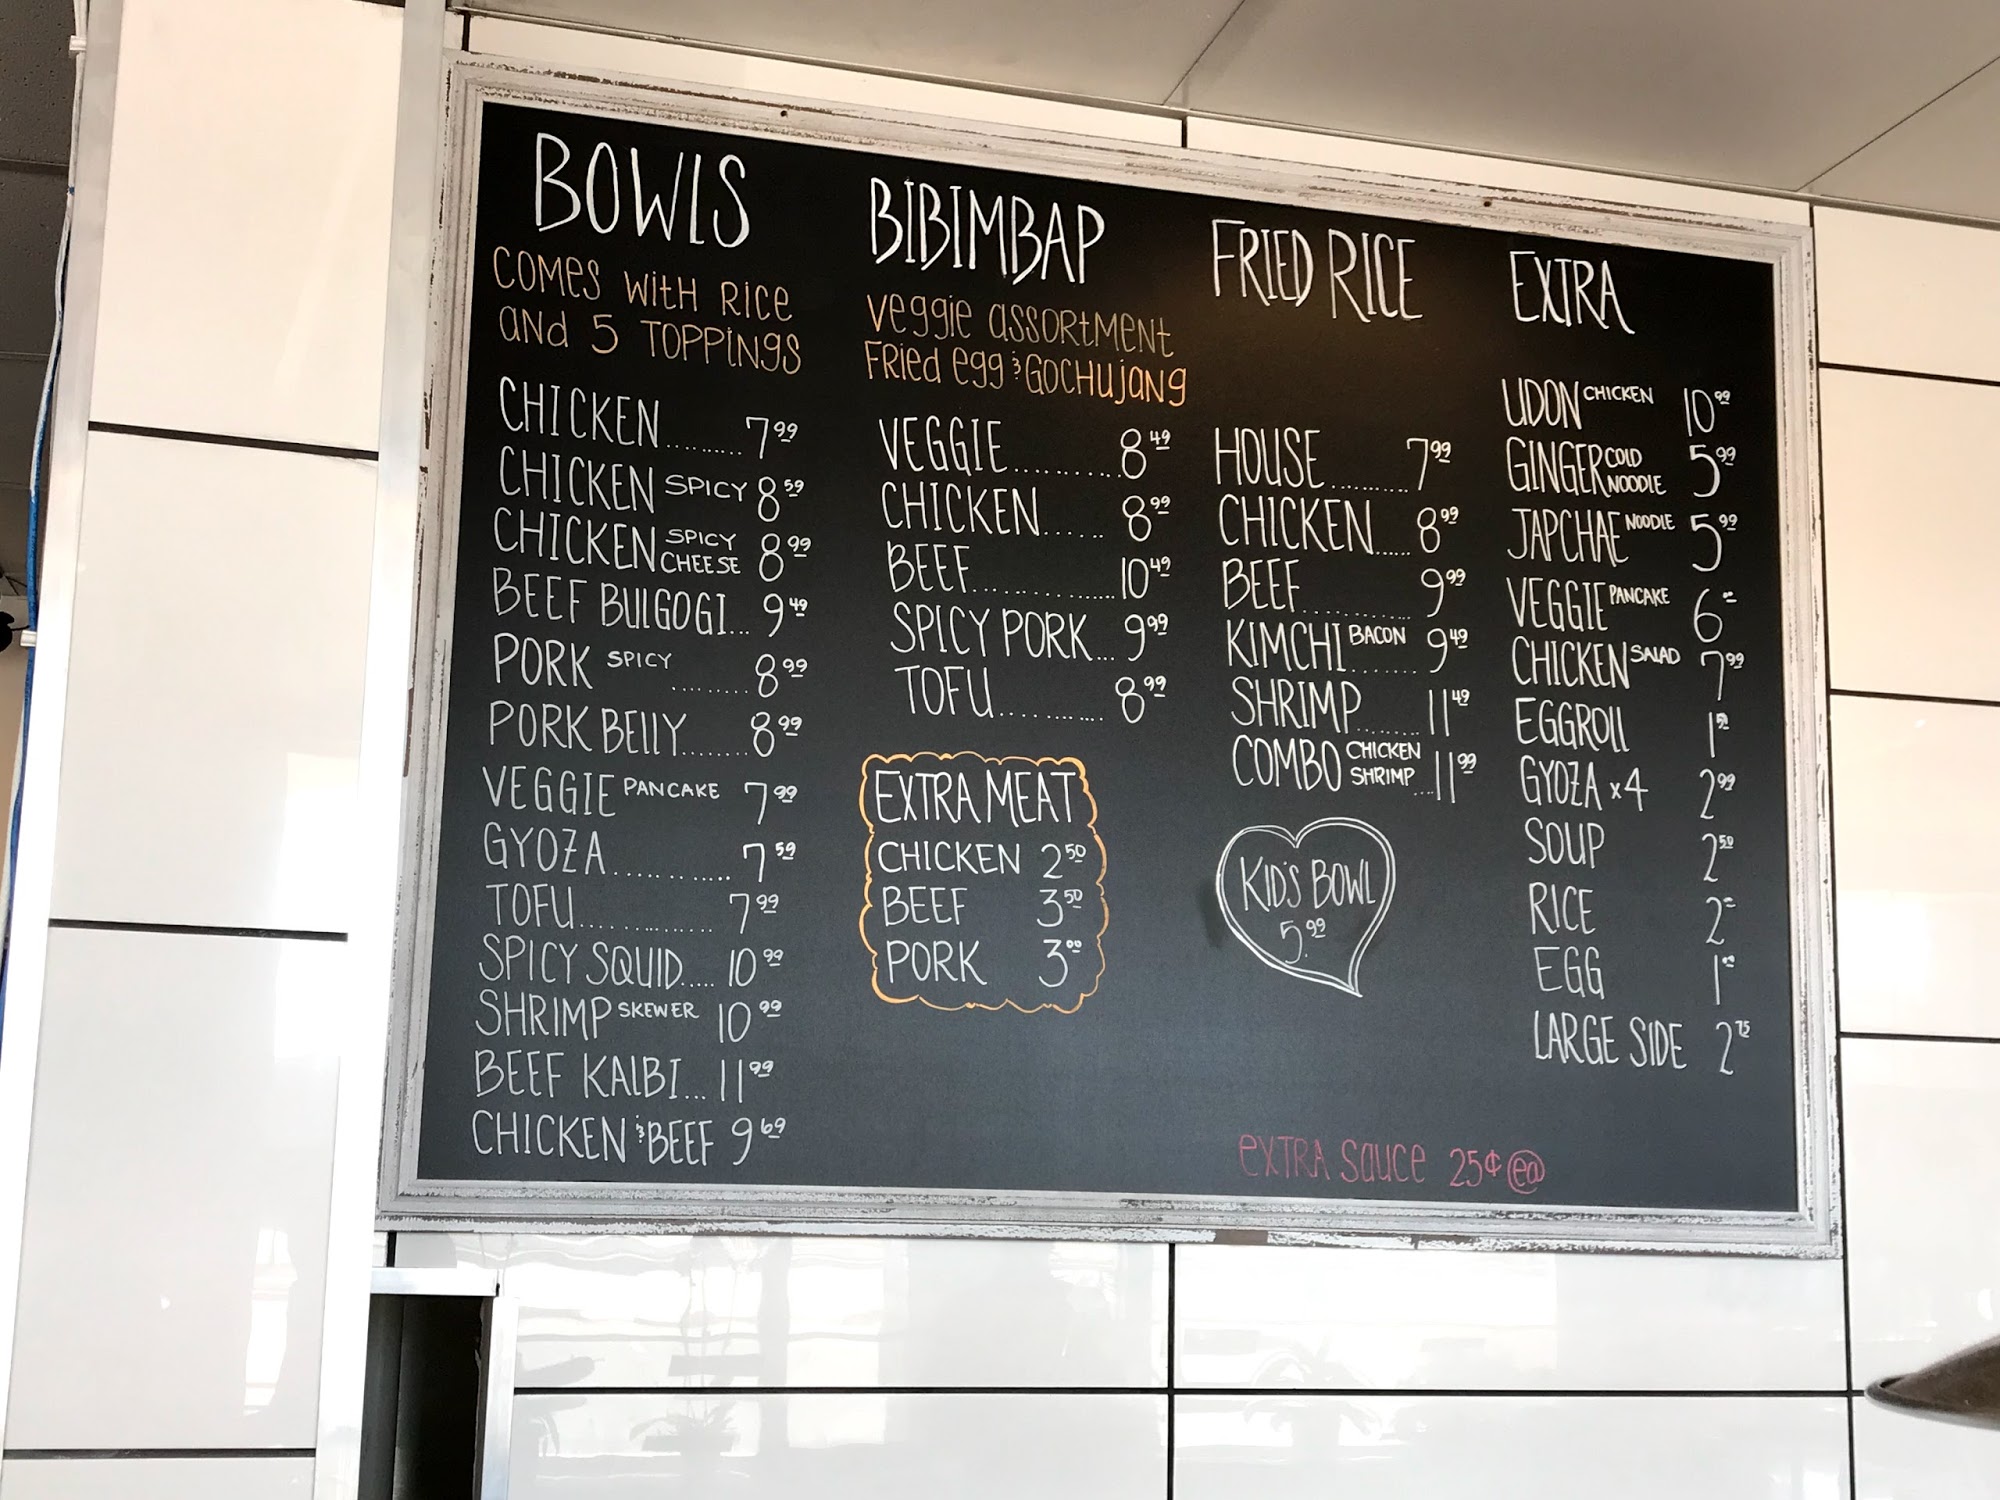 BOWLS
COMES WITH RICE
AND 5 TOPPINGS
CHICKEN......... 7.99
CHICKEN SPICY 8.59
CHICKEN SPICY CHEESE 8.99
BEEF BULGOGI... 9.49
PORK SPICY ......... 8.99
PORK BELLY....... 8.99
VEGGIE PANCAKE 7.99
GYOZA............. 7.59
TOFU.............. 7.99
SPICY SQUID..... 10.99
SHRIMP SKEWER 10.99
BEEF KALBI... 11.99
CHICKEN & BEEF 9.69
BIBIMBAP
VEGGIE ASSORTMENT
FRIED EGG & GOCHUJANG
VEGGIE........... 8.49
CHICKEN...... 8.99
BEEF............... 10.49
SPICY PORK... 9.99
TOFU........... 8.99
EXTRA MEAT
CHICKEN 2.50
BEEF 3.50
PORK 3.00
FRIED RICE
HOUSE.......... 7.99
CHICKEN...... 8.99
BEEF........... 9.99
KIMCHI BACON ....... 9.49
SHRIMP......... 11.49
COMBO CHICKEN SHRIMP ... 11.99
KID'S BOWL
5.99
EXTRA
UDON CHICKEN 10.99
GINGER COLD NOODLE 5.99
JAPCHAE NOODLE 5.99
VEGGIE PANCAKE 6.--
CHICKEN SALAD 7.99
EGGROLL 1.50
GYOZA x4 2.99
SOUP 2.50
RICE 2.--
EGG 1.--
LARGE SIDE 2.75
EXTRA SAUCE 25¢ ea